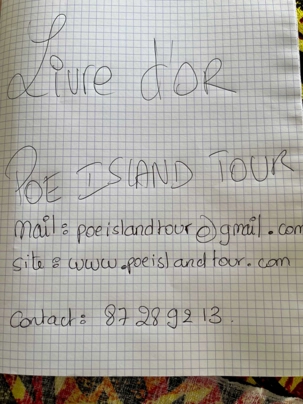 Livre d'OR
POE ISLAND TOUR
Mail : poeislandtour@gmail.com
site : www.poeislandtour.com
Contact : 87 28 92 13.